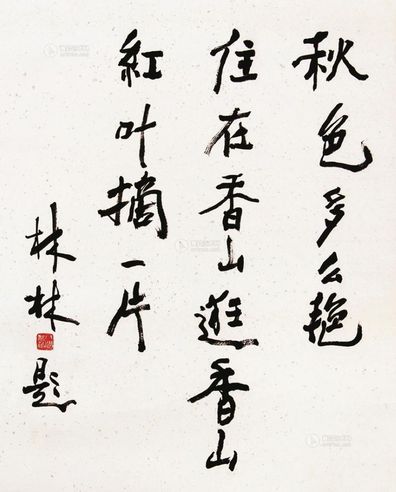 秋色多么艳
住在香山逛香山
红叶摘一片
林林题